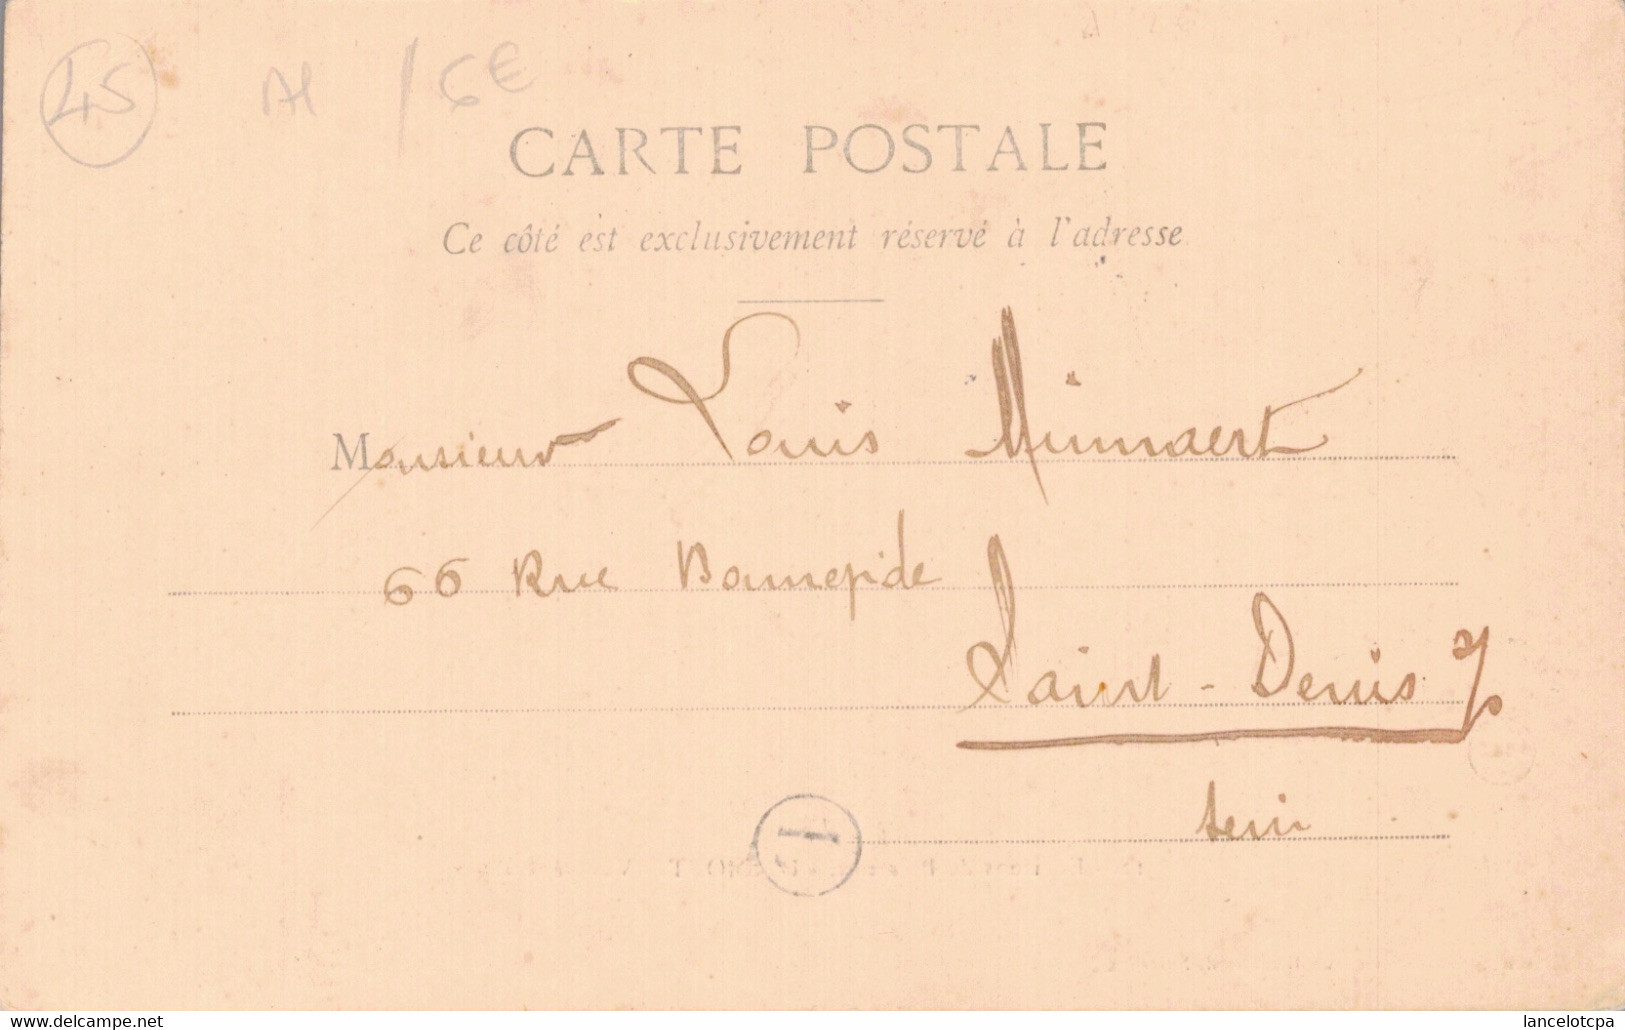 45 AL / 6€
CARTE POSTALE
Ce côté est exclusivement réservé à l'adresse
Monsieur Louis Minnaert
66 Rue Bonnepide
Saint-Denis s/
seine
1
www.delcampe.net
lancelotcpa